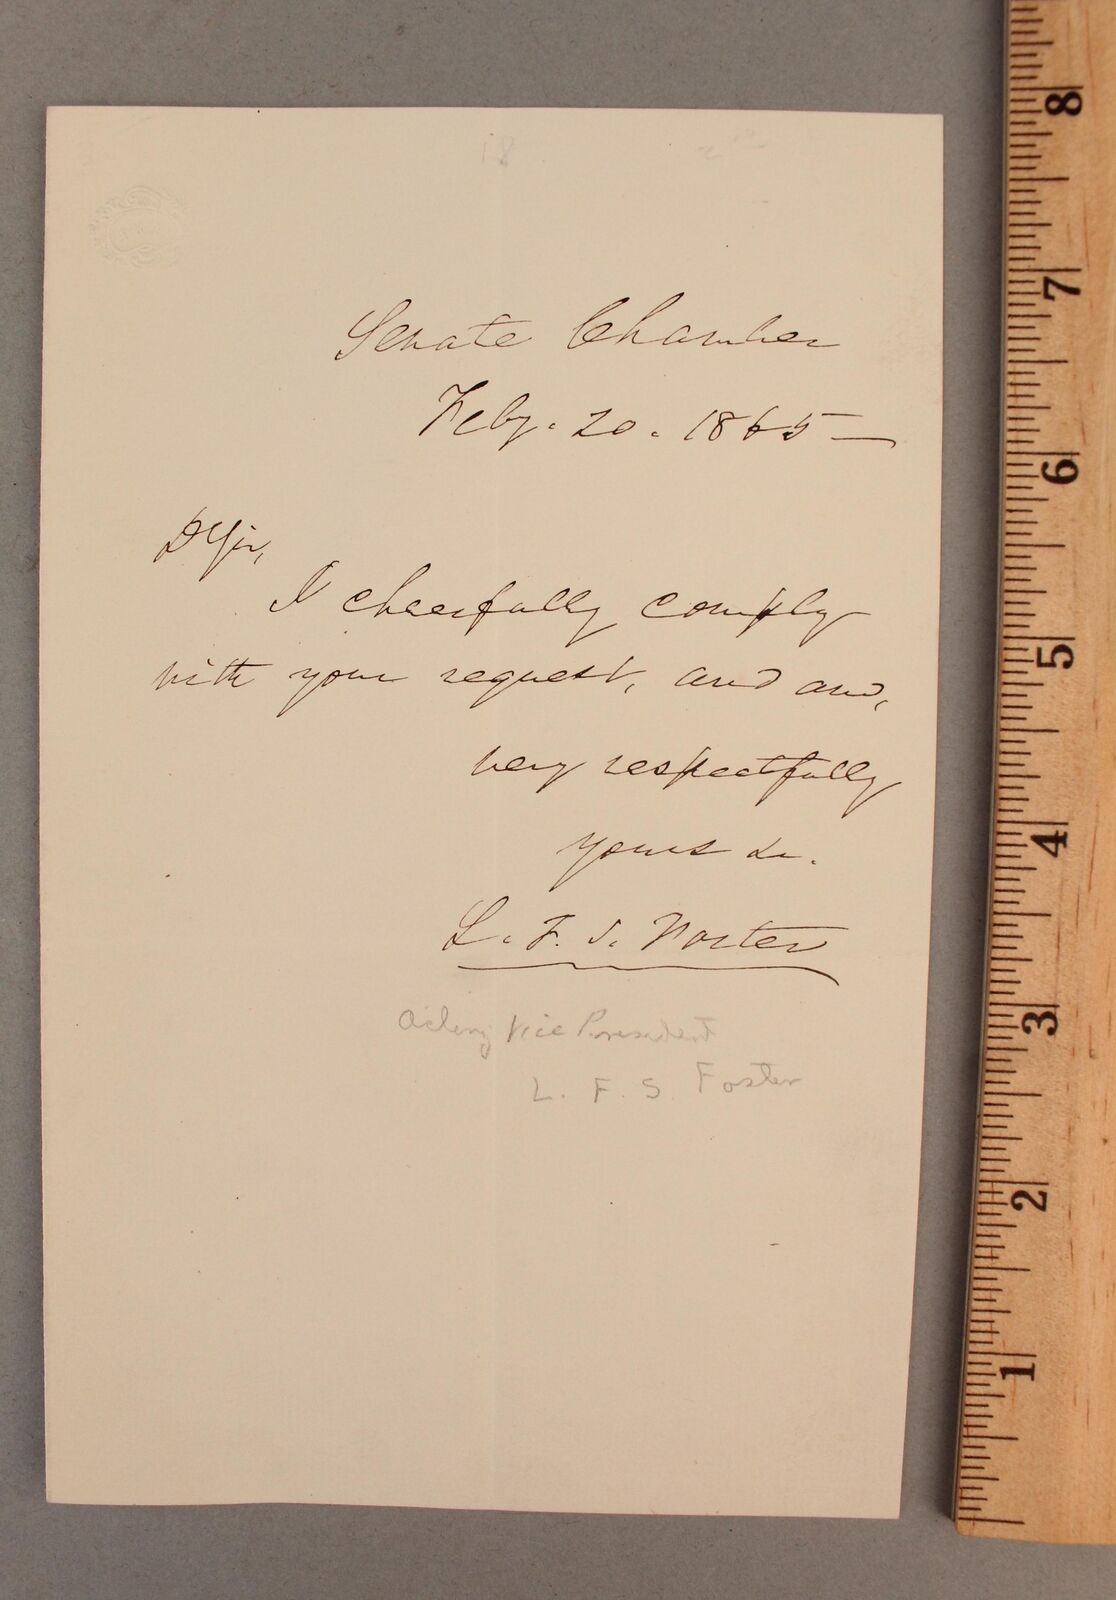 18
Senate Chamber
Feby. 20. 1865—
D Sir,
I cheerfully comply
with your request, and am,
very respectfully
yours &c.
L. F. S. Foster
Acting Vice President
L. F. S. Foster
8
7
6
5
4
3
2
1